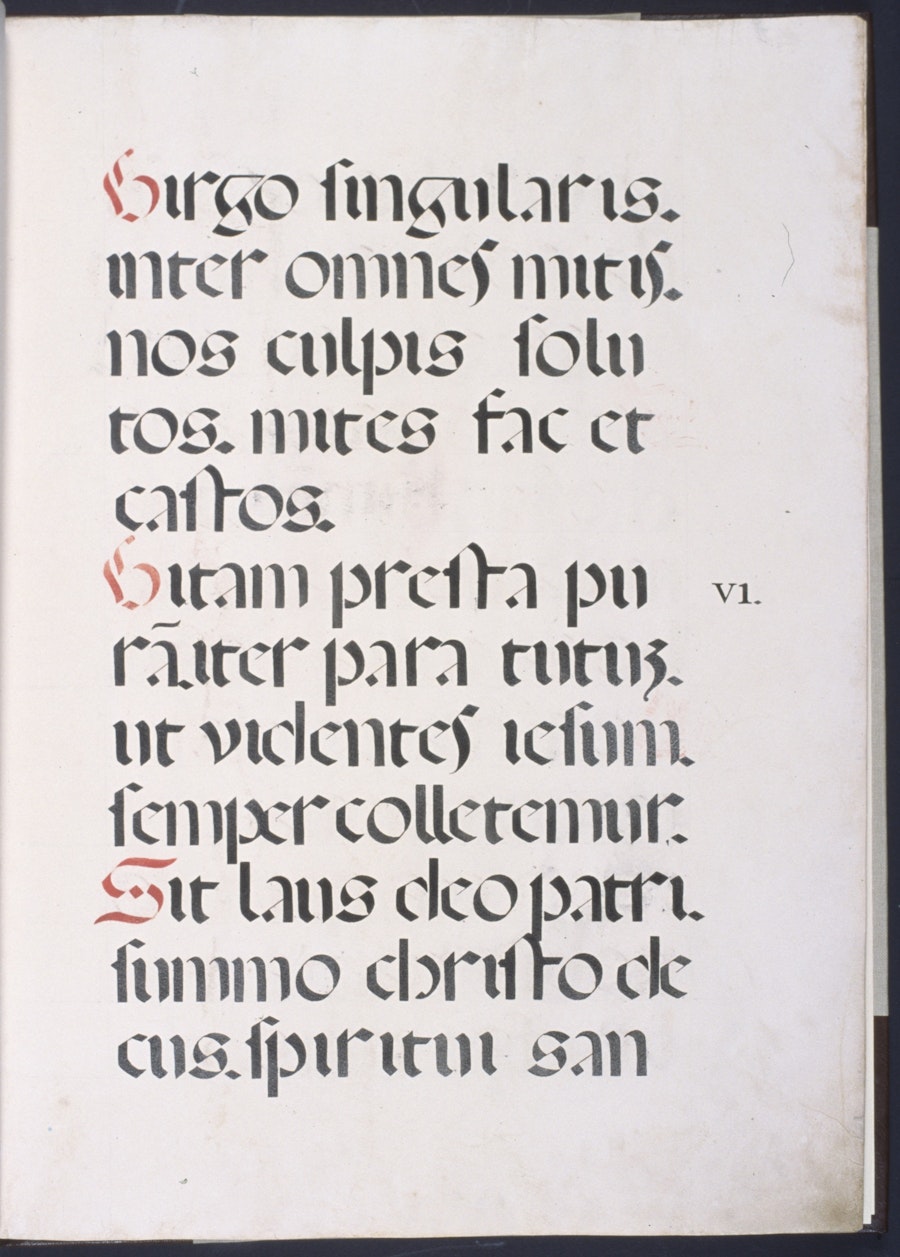 Virgo singularis.
inter omnes mitis.
nos culpis solu
tos. mites fac et
castos.
Vitam presta pu
rã. iter para tutuʒ.
ut videntes iesum.
semper colletemur.
Sit laus deo patri.
summo christo de
cus. spiritui san
VI.